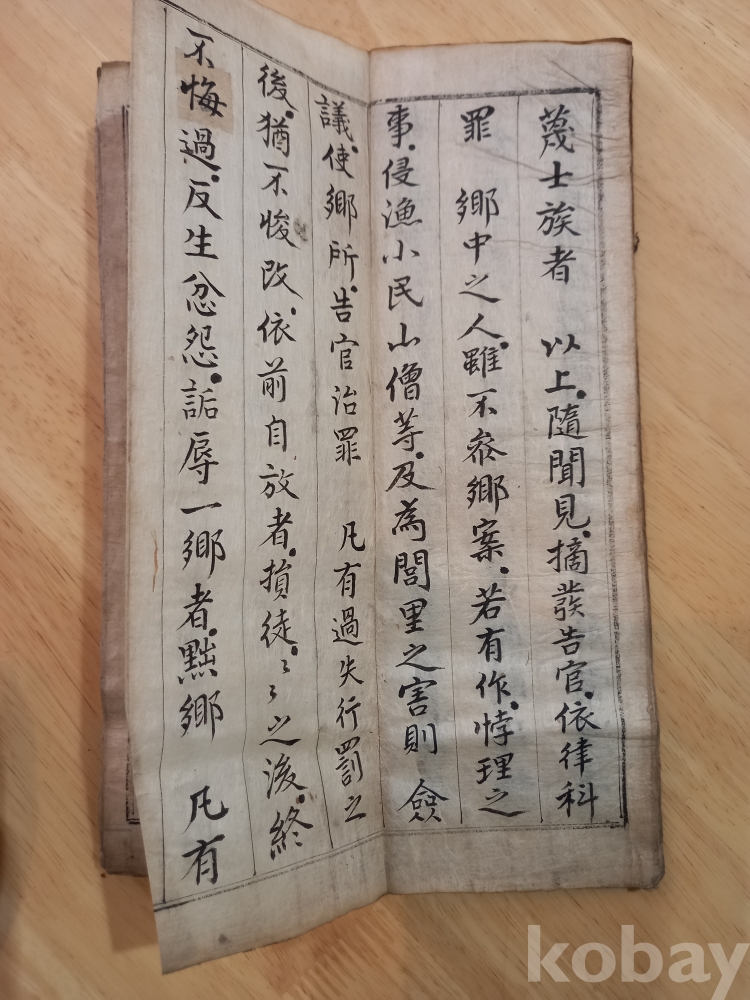 蔑士族者 以上.隨聞見.摘發告官.依律科
罪 鄉中之人.雖不叅鄉案.若有作.悖理之
事.侵漁小民山僧等.及為閭里之害則 僉
議.使鄉所.告官治罪 凡有過失行罰之
後.猶不悛改.依前自放者.損徒.〻〻之後.終
不悔過.反生忿怨.詬辱一鄉者.黜鄉 凡有
kobay